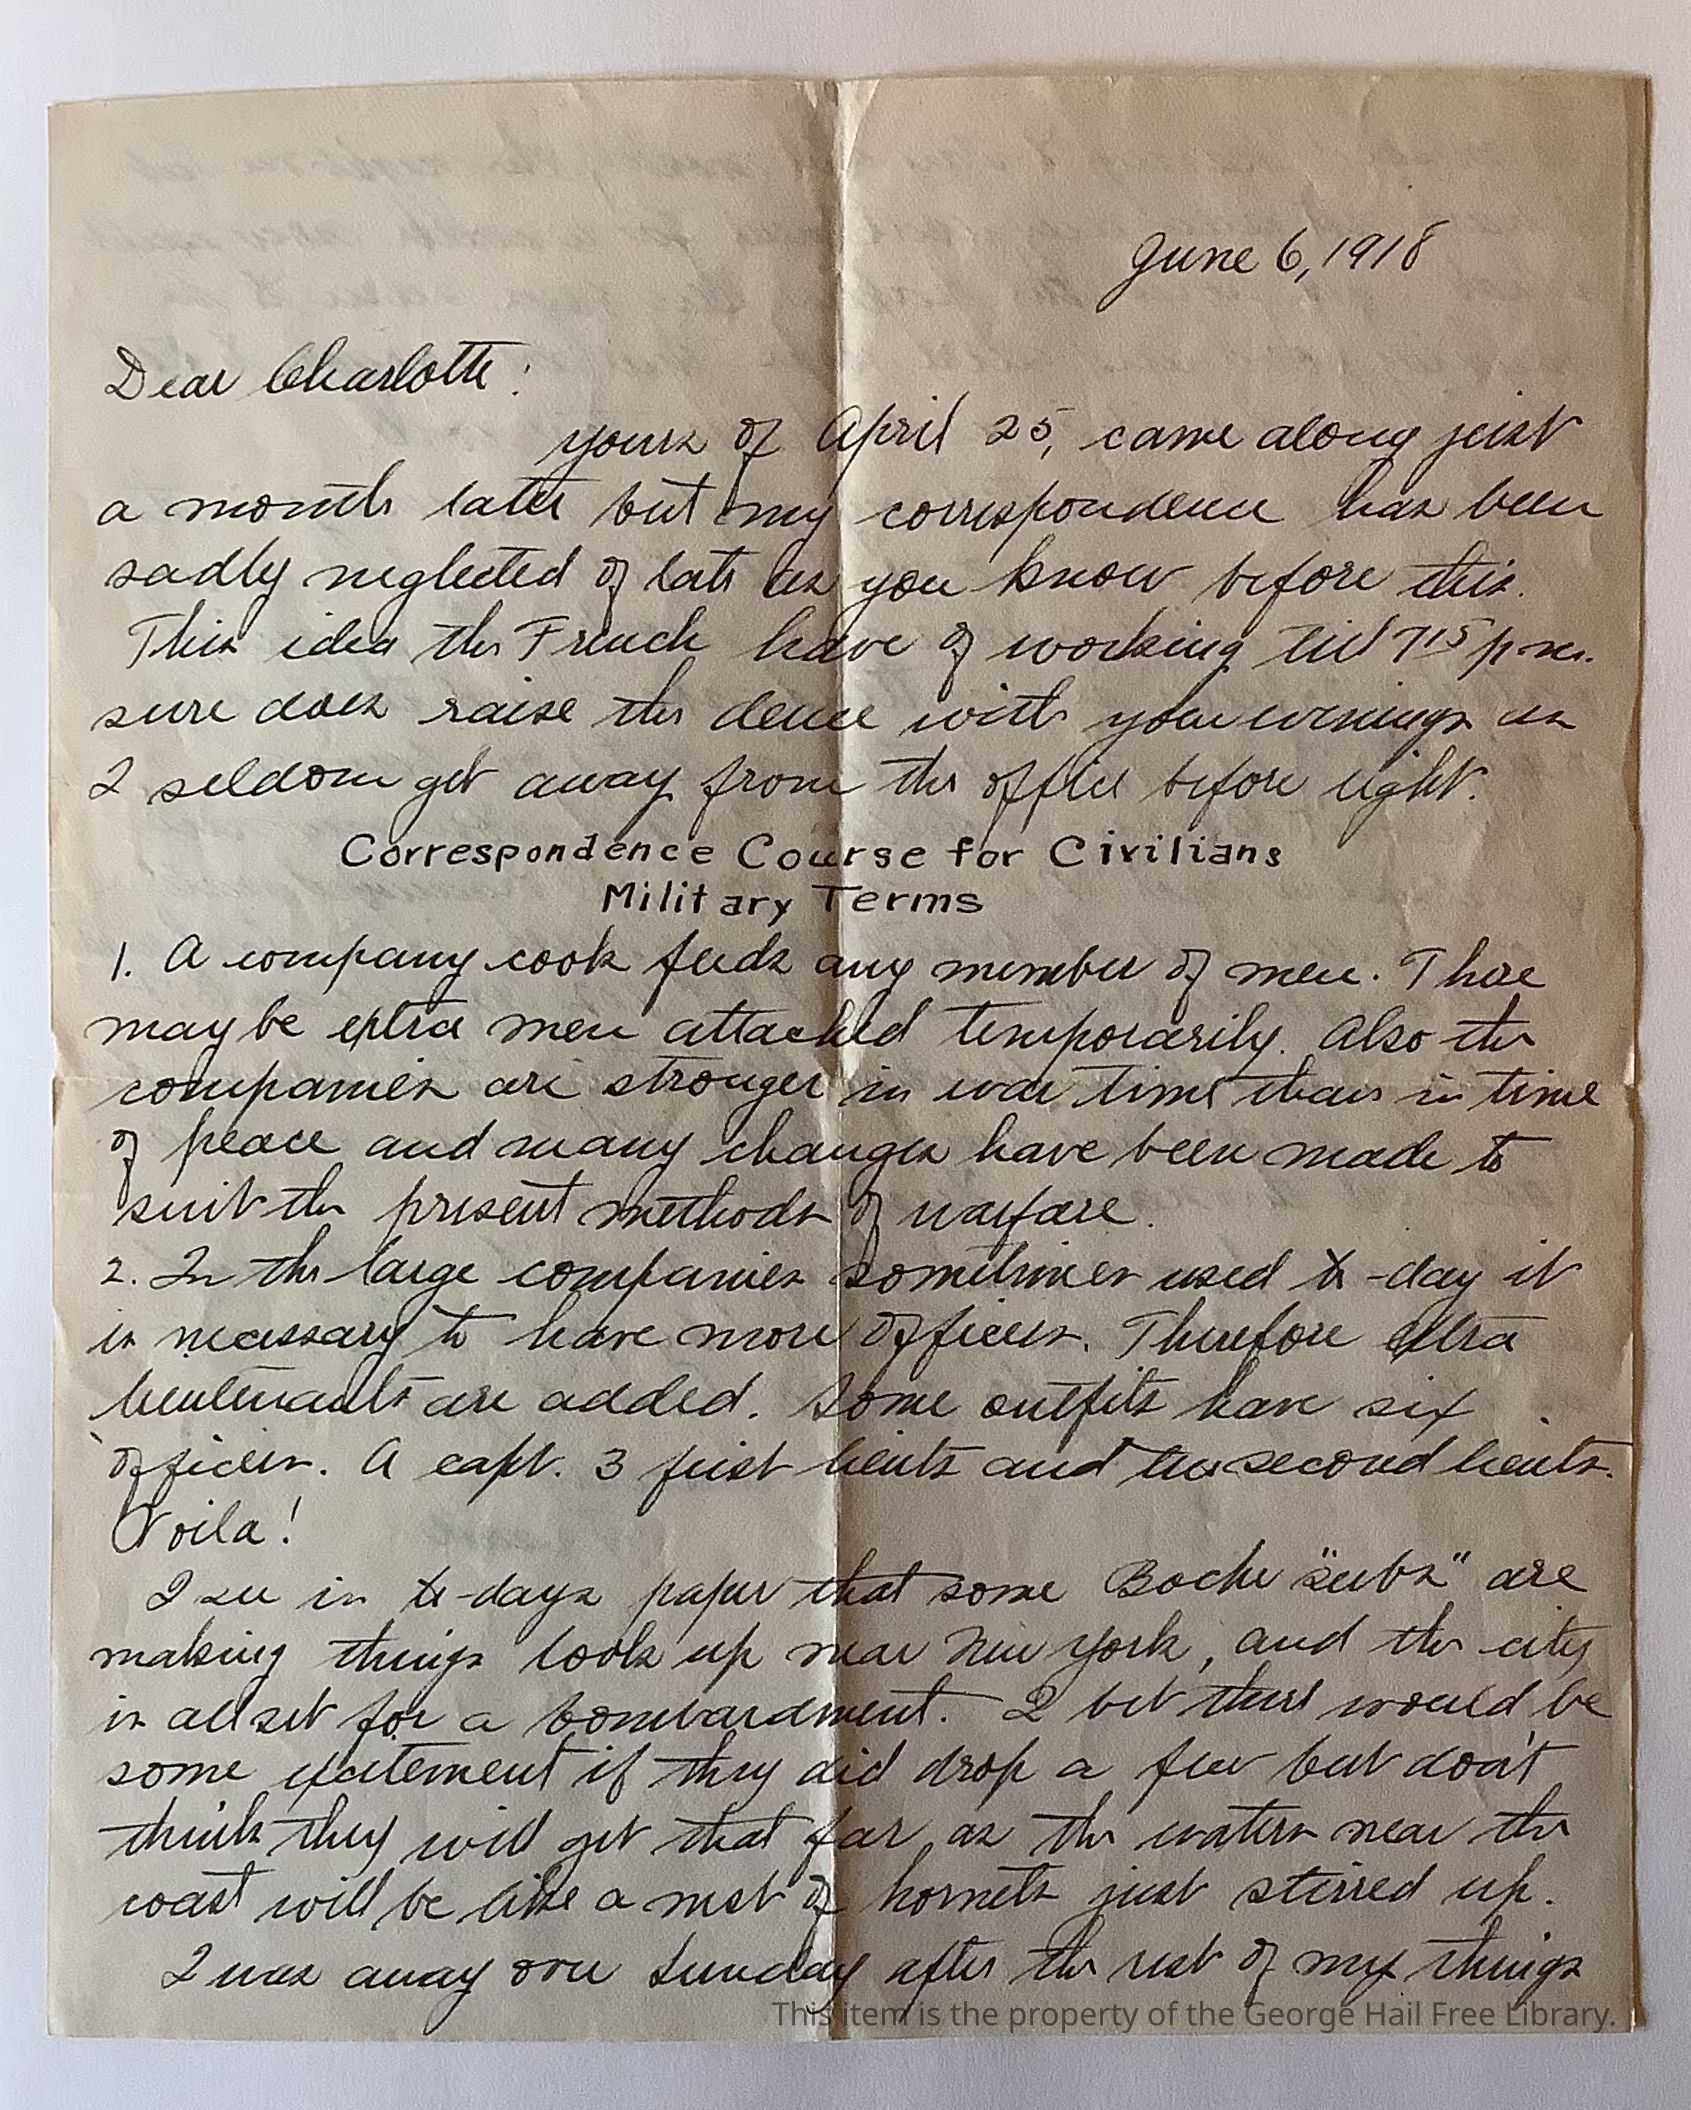 June 6, 1918
Dear Charlotte:
yours of April 25, came along just
a month later but my correspondence has been
sadly neglected of late as you know before this.
This idea the French have of working till 7¹⁵ p.m.
sure does raise the deuce with your evenings as
I seldom get away from the office before eight.
Correspondence Course for Civilians
Military Terms
1. A company cook feeds any number of men. There
may be extra men attached temporarily. Also the
companies are stronger in war time than in time
of peace and many changes have been made to
suit the present methods of warfare.
2. In the large companies sometimes used to-day it
is necessary to have more officers. Therefore extra
lieutenants are added. Some outfits have six
officers. A capt. 3 first lieuts and two second lieuts.
Voila!
I see in to-days paper that some Boche "subs" are
making things look up near New York, and the city
is all set for a bombardment. I bet there would be
some excitement if they did drop a few but don't
think they will get that far as the waters near the
coast will be like a nest of hornets just stirred up.
I was away on Sunday after the rest of my things
This item is the property of the George Hail Free Library.